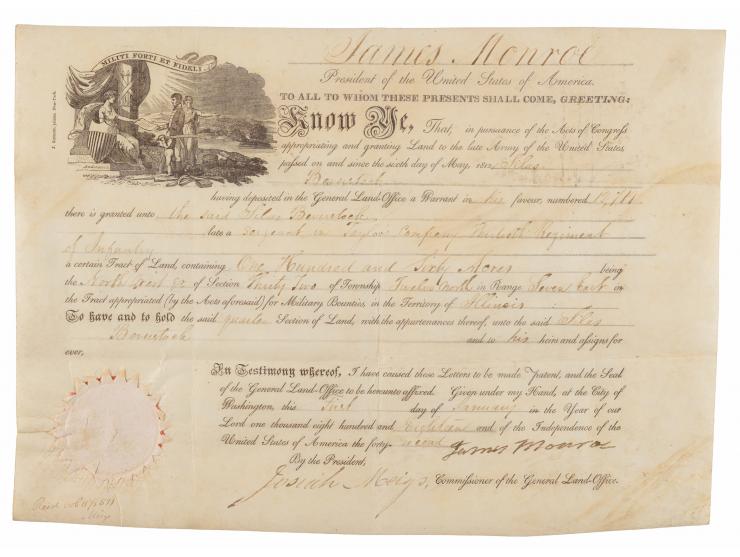 MILITI FORTI ET FIDELI.
James Monroe
President of the United States of America.
TO ALL TO WHOM THESE PRESENTS SHALL COME, GREETING:
Know Ye, That, in pursuance of the Acts of Congress
appropriating and granting Land to the late Army of the United States
passed on and since the sixth day of May, 1812, Silas
having deposited in the General Land-Office a Warrant in his favour, numbered
there is granted unto the said Silas
late a Sergeant in Taylor's Company Regiment
of Infantry
a certain Tract of Land, containing One Hundred and Sixty Acres being
the North of Section Thirty Two of Township Twelve North in Range Seven East in
the Tract appropriated (by the Acts aforesaid) for Military Bounties, in the Territory of Illinois
To have and to hold the said quarter Section of Land, with the appurtenances thereof, unto the said Silas
and to his heirs and assigns for
ever,
In Testimony whereof, I have caused these Letters to be made Patent, and the Seal
of the General Land-Office to be hereunto affixed. Given under my Hand, at the City of
Washington, this first day of January in the Year of our
Lord one thousand eight hundred and Eighteen and of the Independence of the
United States of America the forty-second
James Monroe
By the President,
Josiah Meigs, Commissioner of the General Land-Office.